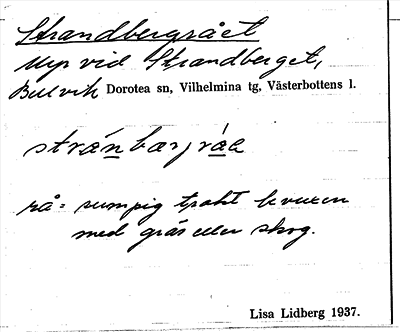 Strandbergsrået
Myr vid Strandberget,
Bulvik Dorotea sn, Vilhelmina tg, Västerbottens l.
stránbærjráe
rå = sumpig trakt
med gräs eller skog.
Lisa Lidberg 1937.